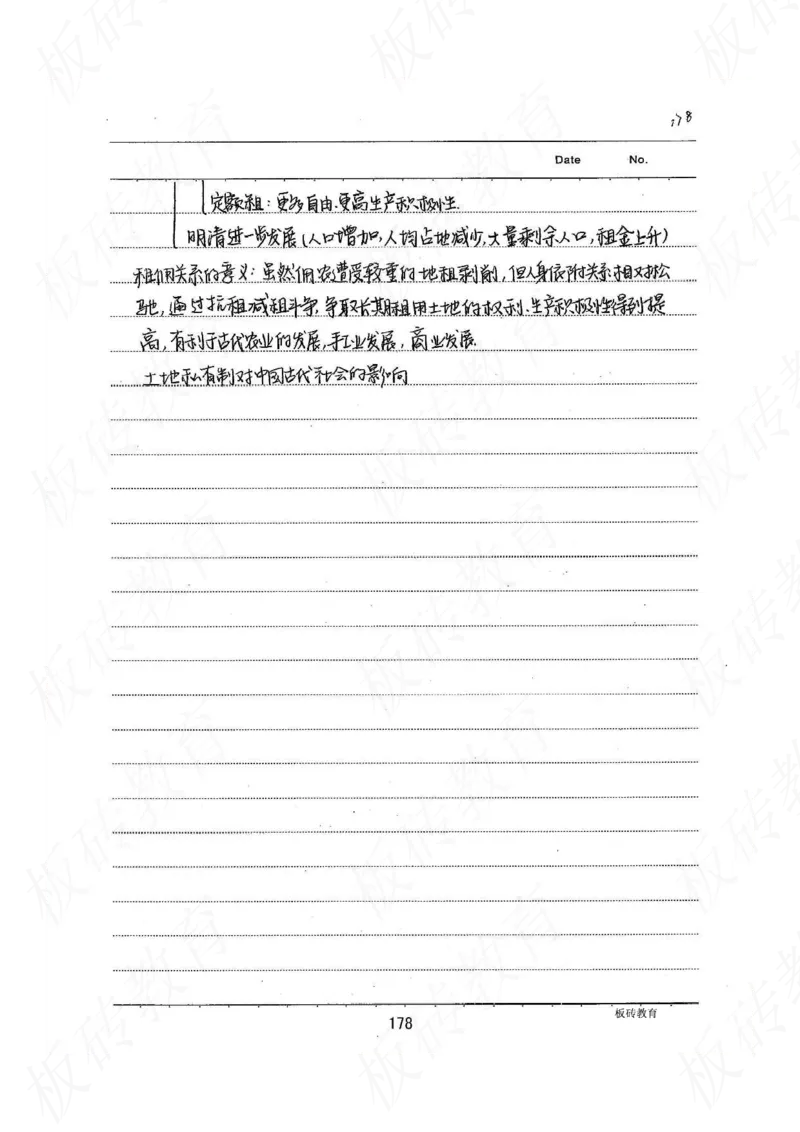 178
Date No.
定额租：更多自由.更高生产积极性.
明清进一步发展(人口增加,人均占地减少,大量剩余人口,租金上升)
租佃关系的意义：虽然佃农遭受较重的地租剥削,但人身依附关系相对松
驰,通过抗租减租斗争,争取长期租用土地的权利.生产积极性得到提
高,有利于古代农业的发展,手工业发展,商业发展.
土地私有制对中国古代社会的影响
178
板砖教育